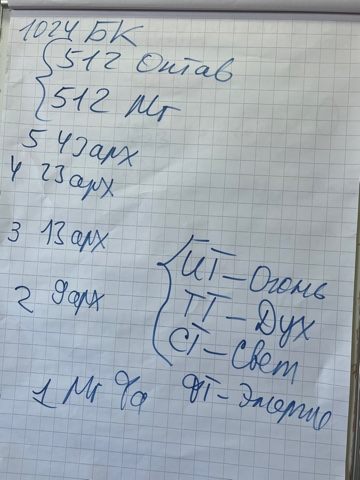 1024 БК
512 Октав
512 Мг
5 43 арх
4 23 арх
3 13 арх
2 9 арх
1 Мг Фа
ИТ – Огонь
ТТ – Дух
СТ – Свет
ФТ – Энергие